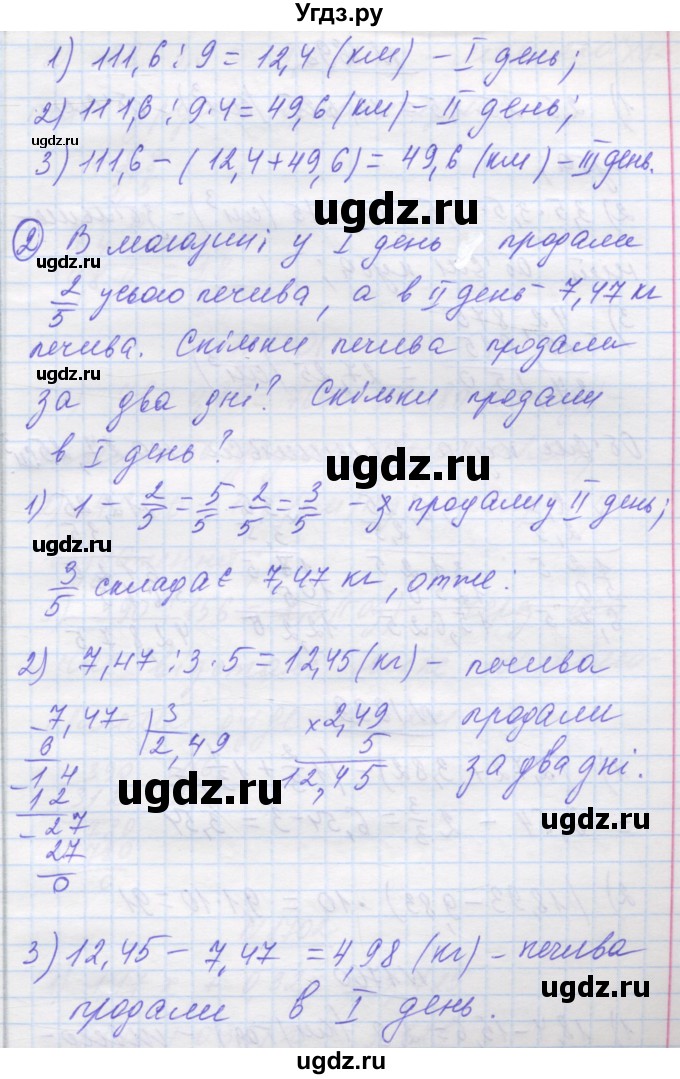 Угдз.ру
1) 111,6 : 9 = 12,4 (км) – I день;
2) 111,6 : 9·4 = 49,6 (км) – II день;
ugdz.ru
3) 111,6 – (12,4+49,6) = 49,6 (км) – III день.
ugdz.ru
ugdz.ru
2) В магазині у I день продали
ugdz.ru
2/5 усього печива, а в II день – 7,47 кг
печива. Скільки печива продали
за два дні? Скільки продали
в I день?
ugdz.ru
1) 1 – 2/5 = 5/5 – 2/5 = 3/5 – продали у II день;
ugdz.ru
3/5 складає 7,47 кг, отже:
2) 7,47 : 3·5 = 12,45 (кг) – печива
-7,47 | 3 ×2,49 продали
6 2,49 5
-14 12,45 за два дні.
ugdz.ru
12
-27
ugdz.ru
27
0
3) 12,45 – 7,47 = 4,98 (кг) – печива
ugdz.ru
ugdz.ru
продали в I день.
ugdz.ru